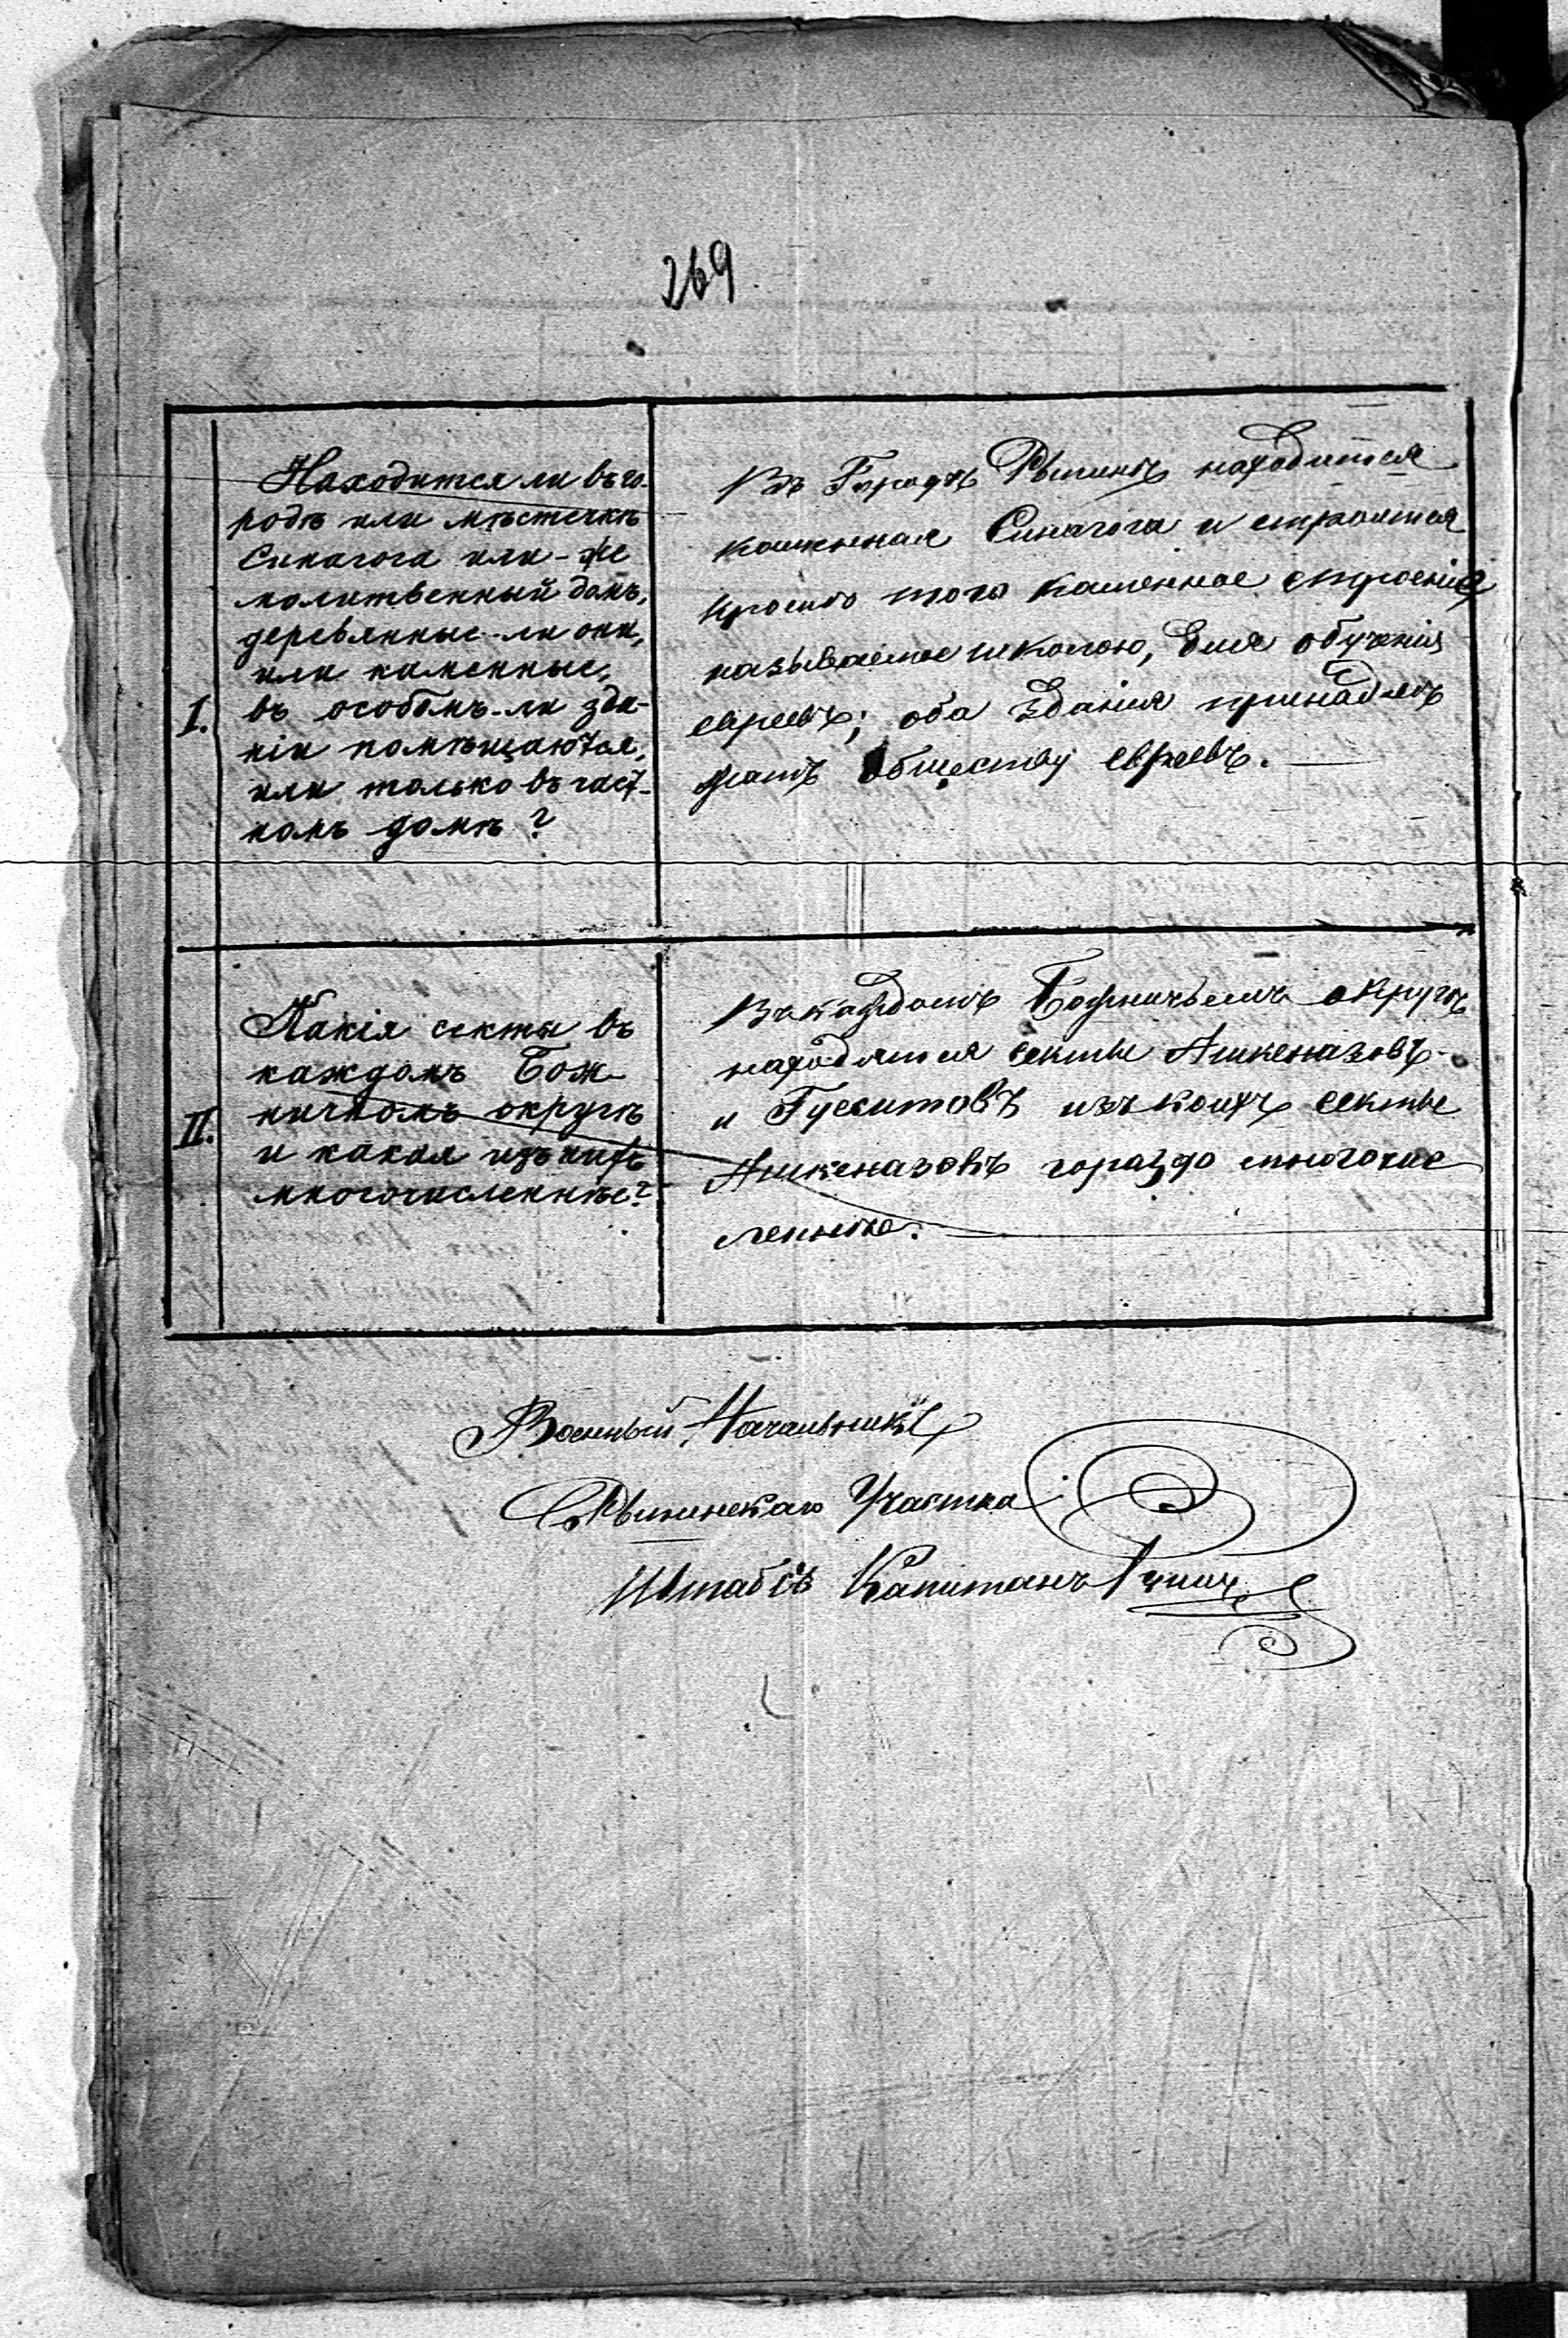 269
I.
Находится ли въ го-
родѣ или мѣстечкѣ
Синагога или-же
молитвенный домъ,
деревянные-ли они,
или каменные,
въ особомъ-ли зда-
ніи помѣщаются,
или только въ част-
номъ домѣ?
Въ Городѣ Рыпинѣ находится
каменная Синагога и строится
кромѣ того каменное строеніе
называемое школою, для обученія
евреевъ; оба зданія принадле
жатъ обществу евреевъ.
II.
Какія секты въ
каждомъ Бож-
ничномъ округѣ
и какая изъ нихъ
многочисленнѣе?
Въ каждомъ Божничьемъ округѣ
находятся секты Ашкеназовъ
и Гусситовъ изъ коихъ секты
Ашкеназовъ гораздо многочис
леннѣе.
Военный Начальникъ
Рыпинскаго Участка
Штабсъ Капитанъ